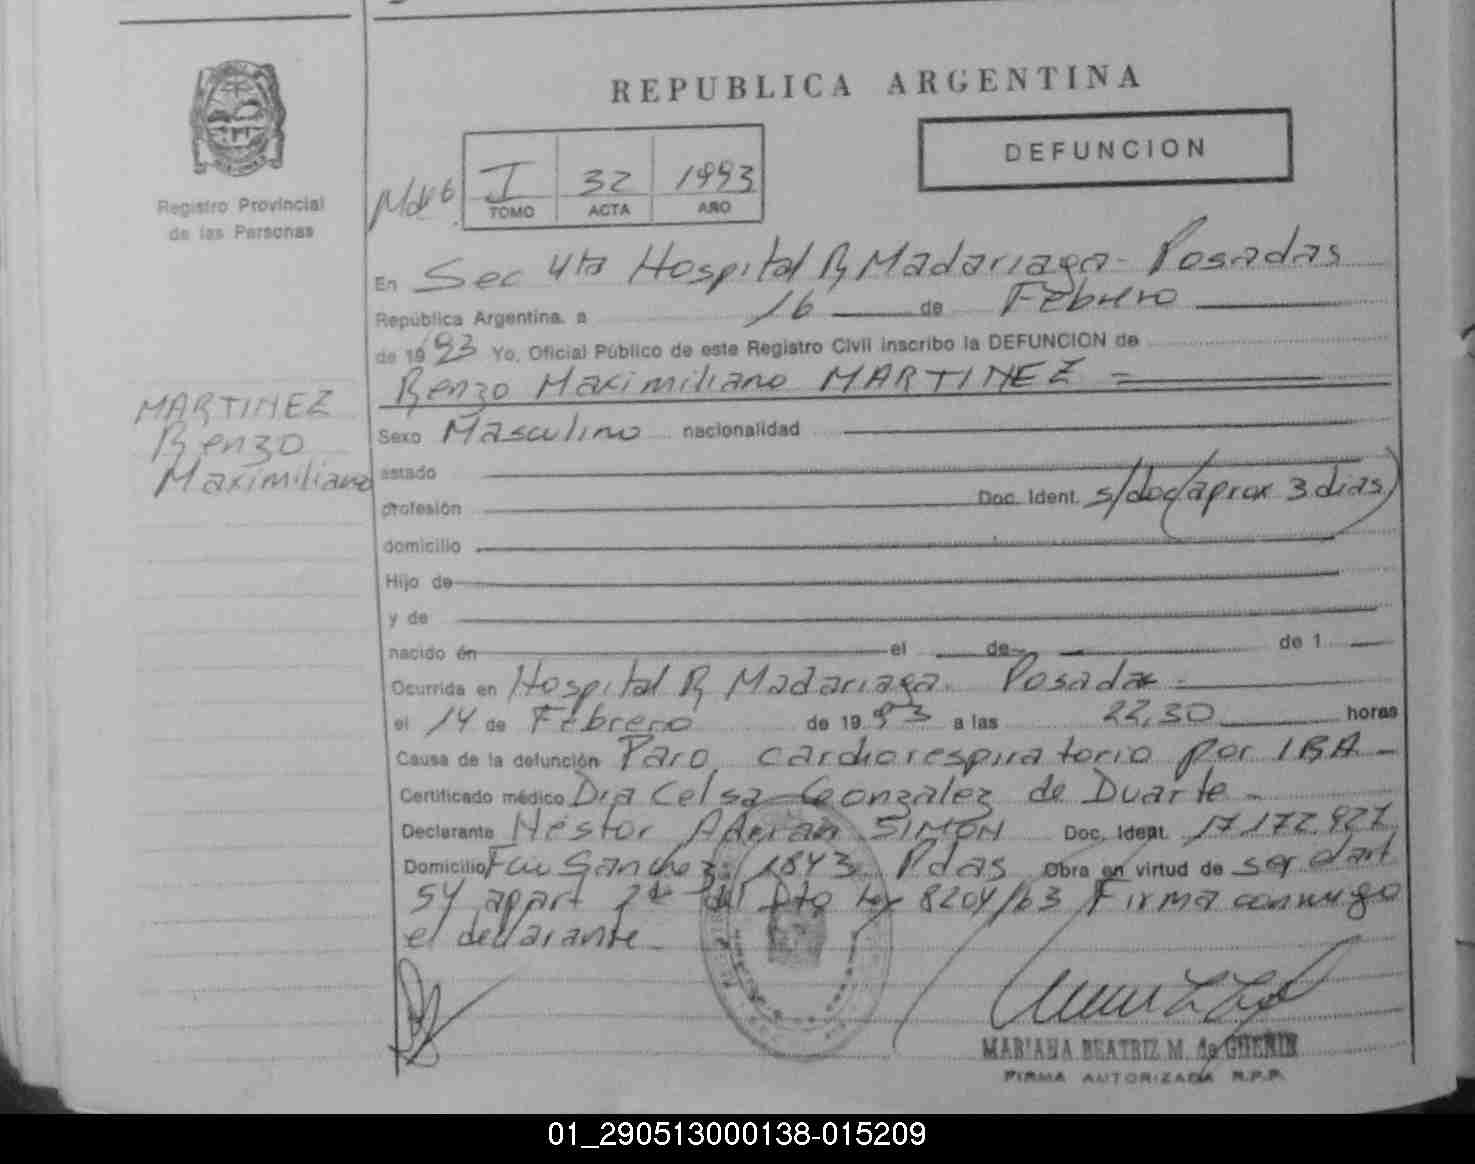 REPUBLICA ARGENTINA
DEFUNCION
Registro Provincial
de las Personas
I 32 1993
TOMO ACTA AÑO
En Sec 4ta Hospital R Madariaga - Posadas
República Argentina, a 16 de Febrero
de 1993 Yo, Oficial Público de este Registro Civil inscribo la DEFUNCION de
Renzo Maximiliano MARTINEZ
MARTINEZ
Renzo
Maximiliano
Sexo Masculino nacionalidad
estado
profesión Doc. Ident. s/doc (aprox 3 dias)
domicilio
Hijo de
y de
nacido en el de de 1
Ocurrida en Hospital R Madariaga. Posadas
el 14 de Febrero de 1993 a las 22,30 horas
Causa de la defunción Paro cardiorespiratorio por IRA -
Certificado médico Dra Celsa Gonzalez de Duarte -
Declarante Néstor Adrian SIMON Doc. Ident. 17.172.927
Domicilio Fco Sanchez 1843 Pdas Obra en virtud de ser d art
54 apart 2do del Dto Ley 8204/63 Firma conmigo
el declarante -
MARIANA BEATRIZ M. de GUERIN
FIRMA AUTORIZADA R.P.P.
01_290513000138-015209